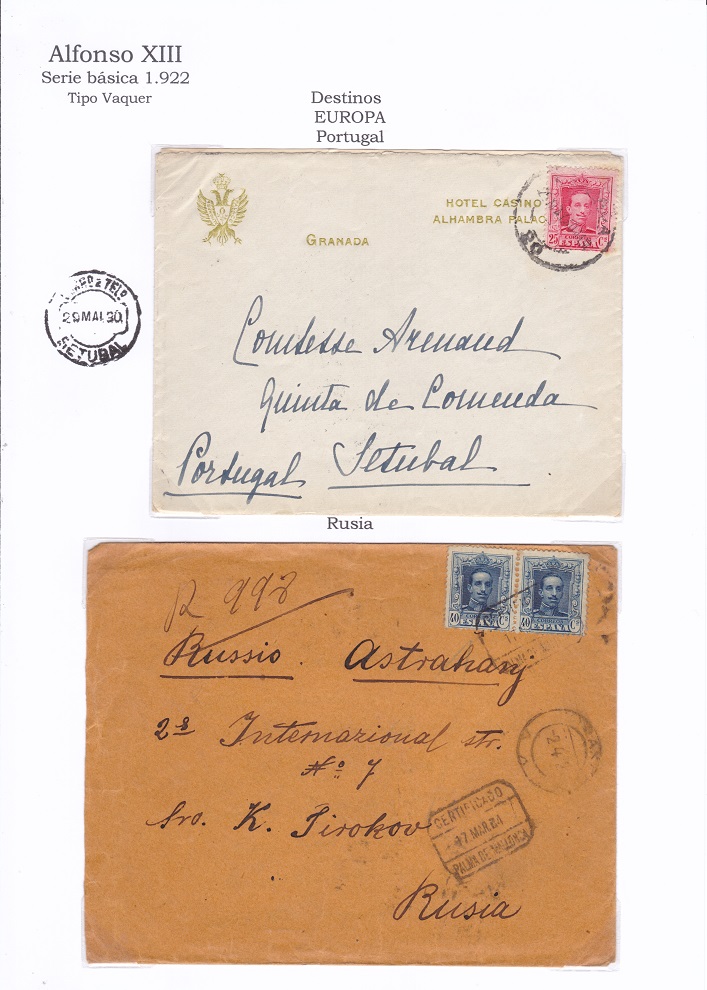 Alfonso XIII
Serie básica 1.922
Tipo Vaquer
Destinos
EUROPA
Portugal
HOTEL CASINO
ALHAMBRA PALAC
GRANADA
25 CORREOS Cs
ESPAÑA
29 MAI 30
SETUBAL
Comtesse Armand
Quinta de Comenda
Portugal Setubal
Rusia
R 998
40 ESPAÑA Cs
40 ESPAÑA Cs
Russio. Astrahanj
2ª Internazional str.
Nº 7
Sro. K. Pirokov
CERTIFICADO
17 MAR.24
PALMA DE MALLORCA
Rusia